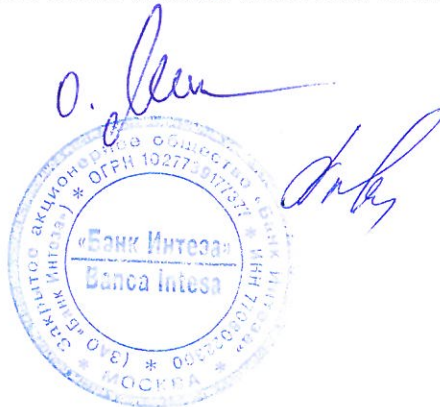 О.
Закрытое акционерное общество «Банк Интеза»
(ЗАО «Банк Интеза») * ОГРН 1027739177377 * ИНН 7708022300 *
* МОСКВА *
«Банк Интеза»
Banca Intesa